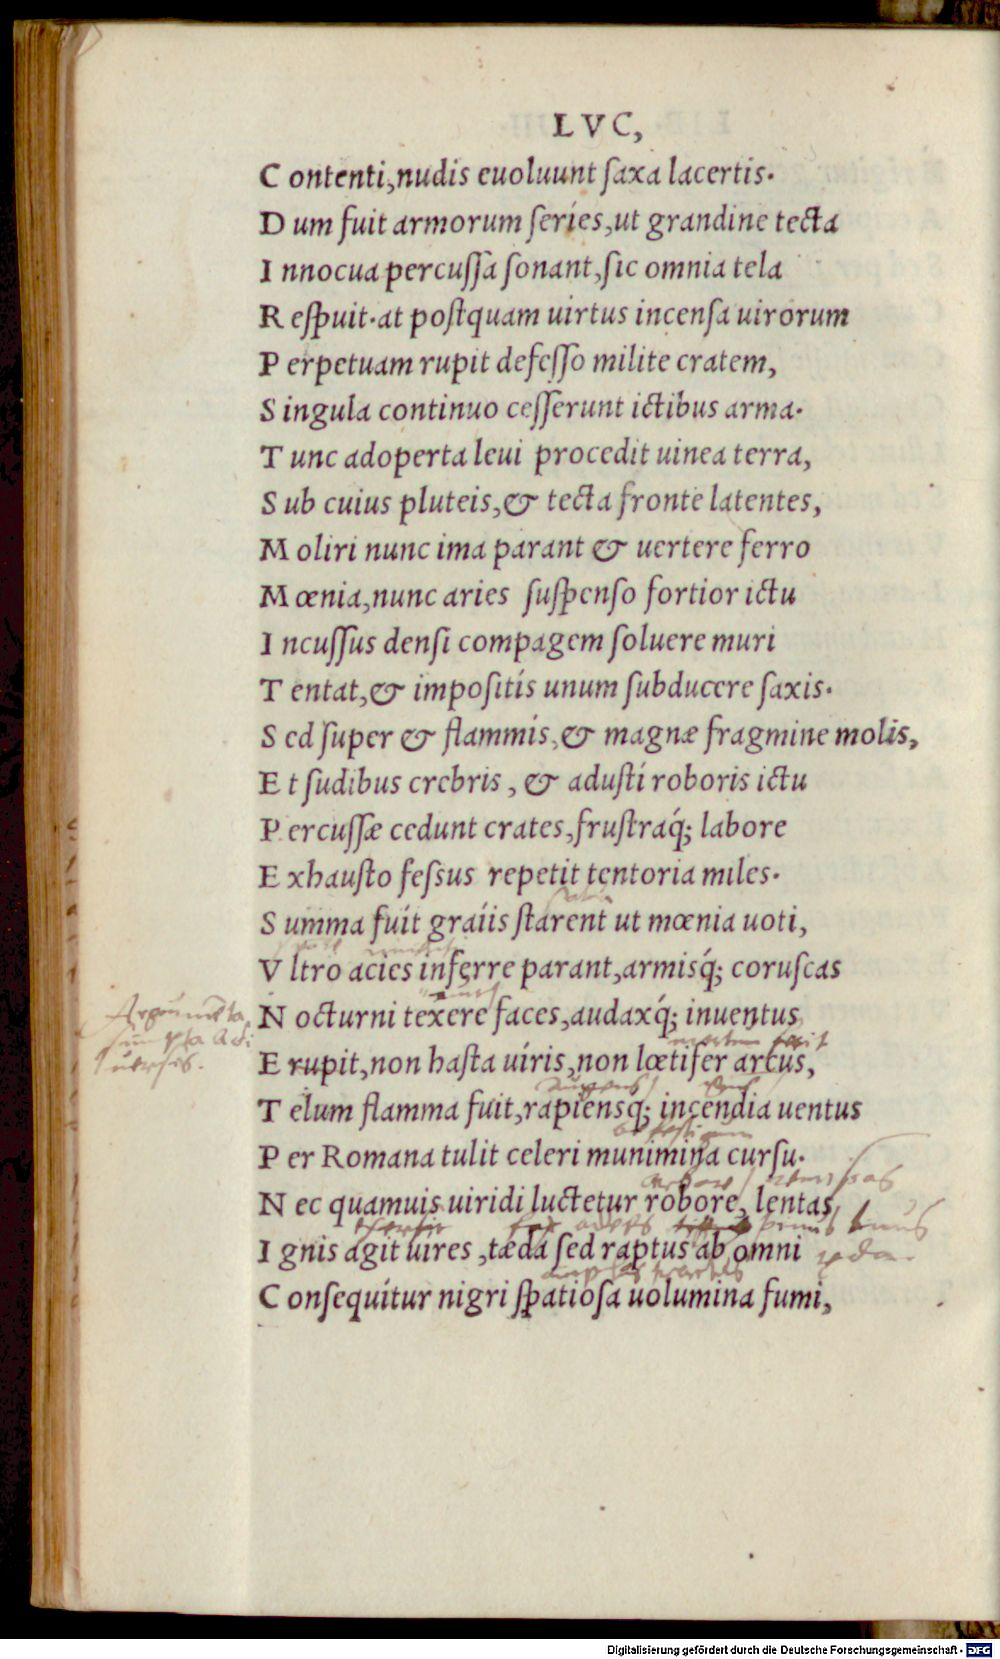 LVC,
C ontenti, nudis euoluunt ſaxa lacertis.
D um fuit armorum ſeries, ut grandine tecta
I nnocua percuſſa ſonant, ſic omnia tela
R eſpuit. at poſtquam uirtus incenſa uirorum
P erpetuam rupit defeſſo milite cratem,
S ingula continuo ceſſerunt ictibus arma.
T unc adoperta leui procedit uinea terra,
S ub cuius pluteis, & tecta fronte latentes,
M oliri nunc ima parant & uertere ferro
M œnia, nunc aries ſuſpenſo fortior ictu
I ncuſſus denſi compagem ſoluere muri
T entat, & impoſitis unum ſubducere ſaxis.
S ed ſuper & flammis, & magnæ fragmine molis,
E t ſudibus crebris, & aduſti roboris ictu
P ercuſſæ cedunt crates, fruſtraq́; labore
E xhauſto feſsus repetit tentoria miles.
S umma fuit graiis ſtarent ut mœnia uoti,
V ltro acies inferre parant, armisq́; coruſcas
N octurni texere faces, audaxq́; inuentus
E rupit, non haſta uiris, non lœtifer arcus,
T elum flamma fuit, rapiensq́; incendia uentus
P er Romana tulit celeri munimina curſu.
N ec quamuis uiridi luctetur robore, lentas
I gnis agit uires, tæda ſed raptus ab omni
C onſequitur nigri ſpatioſa uolumina fumi,
Digitalisierung gefördert durch die Deutsche Forschungsgemeinschaft - DFG